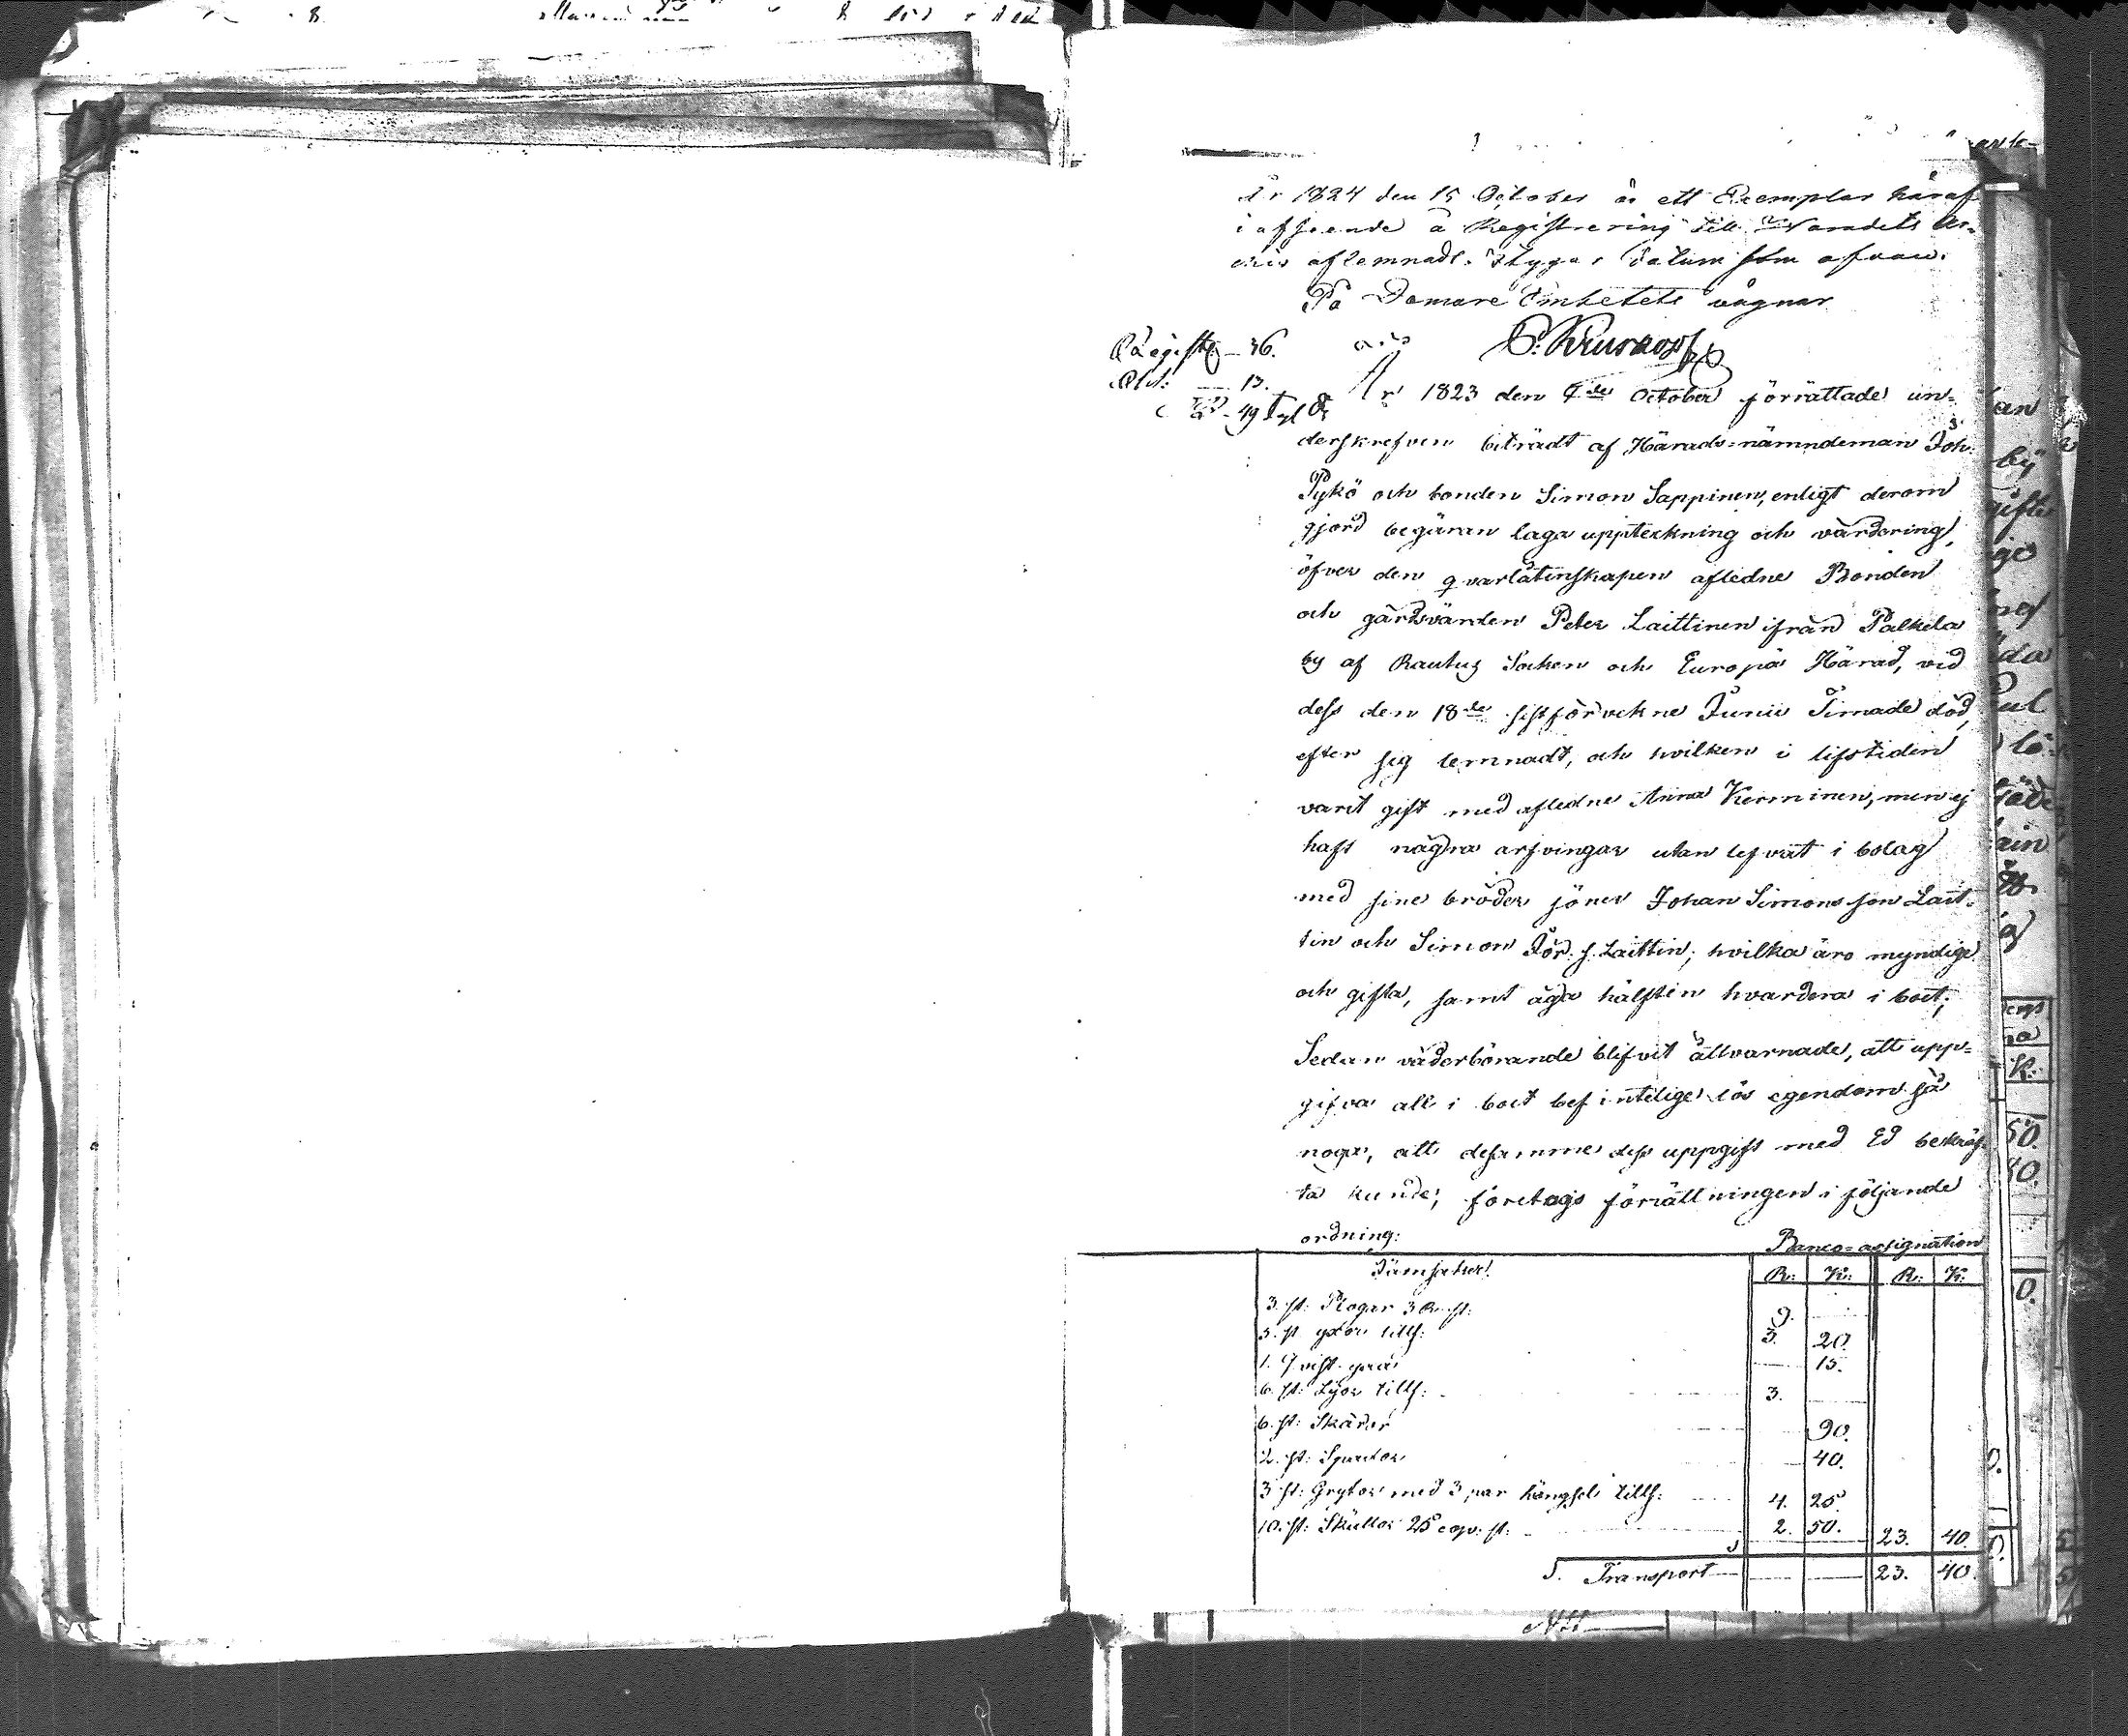 År 1824 den 15 October är ett Exemplar häraf
i afseende å Registrering till Häradets Ar-
chiv aflemnadt. Etyga, Datum som ofvan.
På Domare Embetets vägnar
36.
13.
49
År 1823 den 4de October förrättade un-
derskrefven biträdt af Härads-nämndeman Joh:
Pykö och bonden Simon Sappinen, enligt derom
gjord begäran laga uppteckning och värdering,
öfver den qvarlåtenskapen afledne Bonden
och gårdsvärden Peter Laittinen ifrån Palkela
by af Rautus Socken och Europä Härad, vid
dess den 18de sistförvekne Junii Timade död,
efter sig lemnadt, och hvilken i lifstiden
varit gift med afledne Anna Kerminen, men ej
haft några arfvingar utan lefvat i bolag
med sine bröder söner Johan Simonsson Lait-
tin och Simon Jör. s. Laittin; hvilka äro myndige
och gifta, samt äga hälften hvardera i boet;
Sedan väderbörande blifvit åtvarnade, att upp-
gifva allt i boet befintelige lös egendom så
noga, att desamme dess uppgift med Ed bekräf-
ta kunde; företogs förrättningen i följande
ordning:
Banco-assignation
Järnsaker. R: K: R: K:
3. st: Plogar 3 R. st: 9.
5. st yxor tills: 3. 20.
1. Qvist yxa 15.
6. st: Lijor tills: 3.
6. st: Skäror 90.
2. st: 40.
3 st: Grytor med 3 par hängsel tills: 4. 25
10. st: Skullor 25 cop: st: 2. 50. 23. 40.
S. Transport 23. 40.